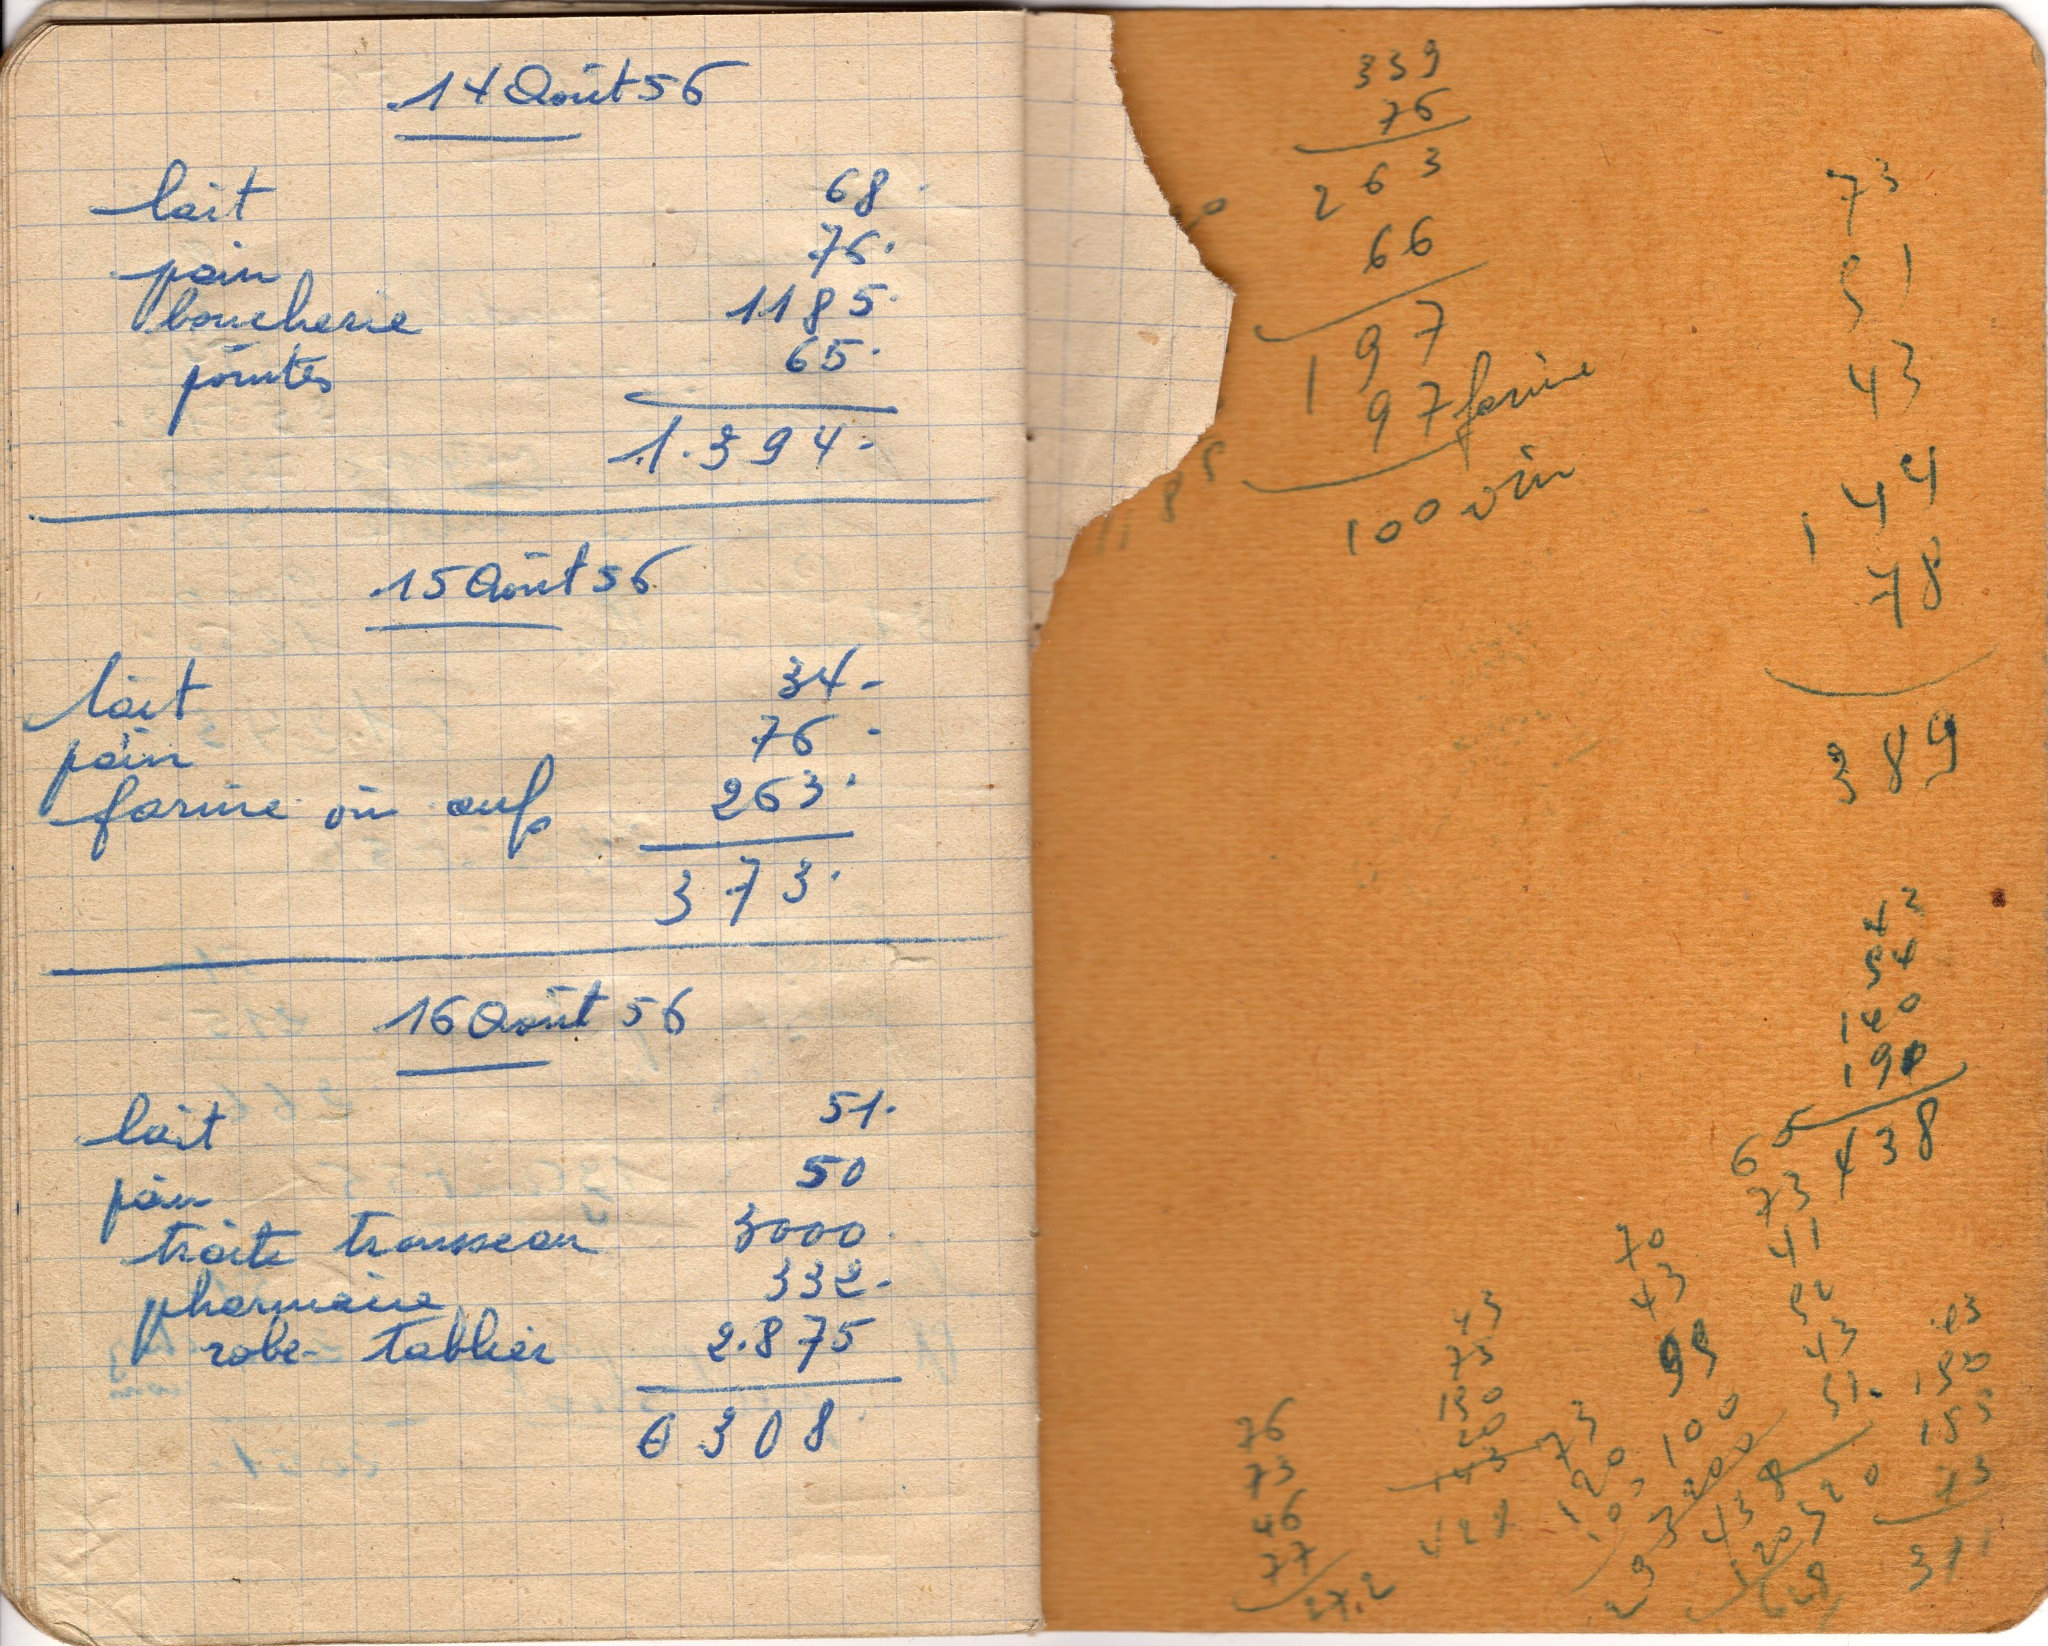 14 Août 56
lait 68.
pain 76.
boucherie 1185.
pointes 65.
1.394.
15 Août 56
lait 34-
pain 76.
farine vin œufs 263.
373.
16 Août 56
lait 51.
pain 50
traite trousseau 3000.
pharmacie 332.
robe tablier 2.875
6308
339
76
263
66
197
97 farine
100 vin
73
51
43
144
78
389
43
54
140
438
65
73
41
52
43
51.
438
70
43
95
100
200
73
120
43
73
150
20
143
76
73
46
77